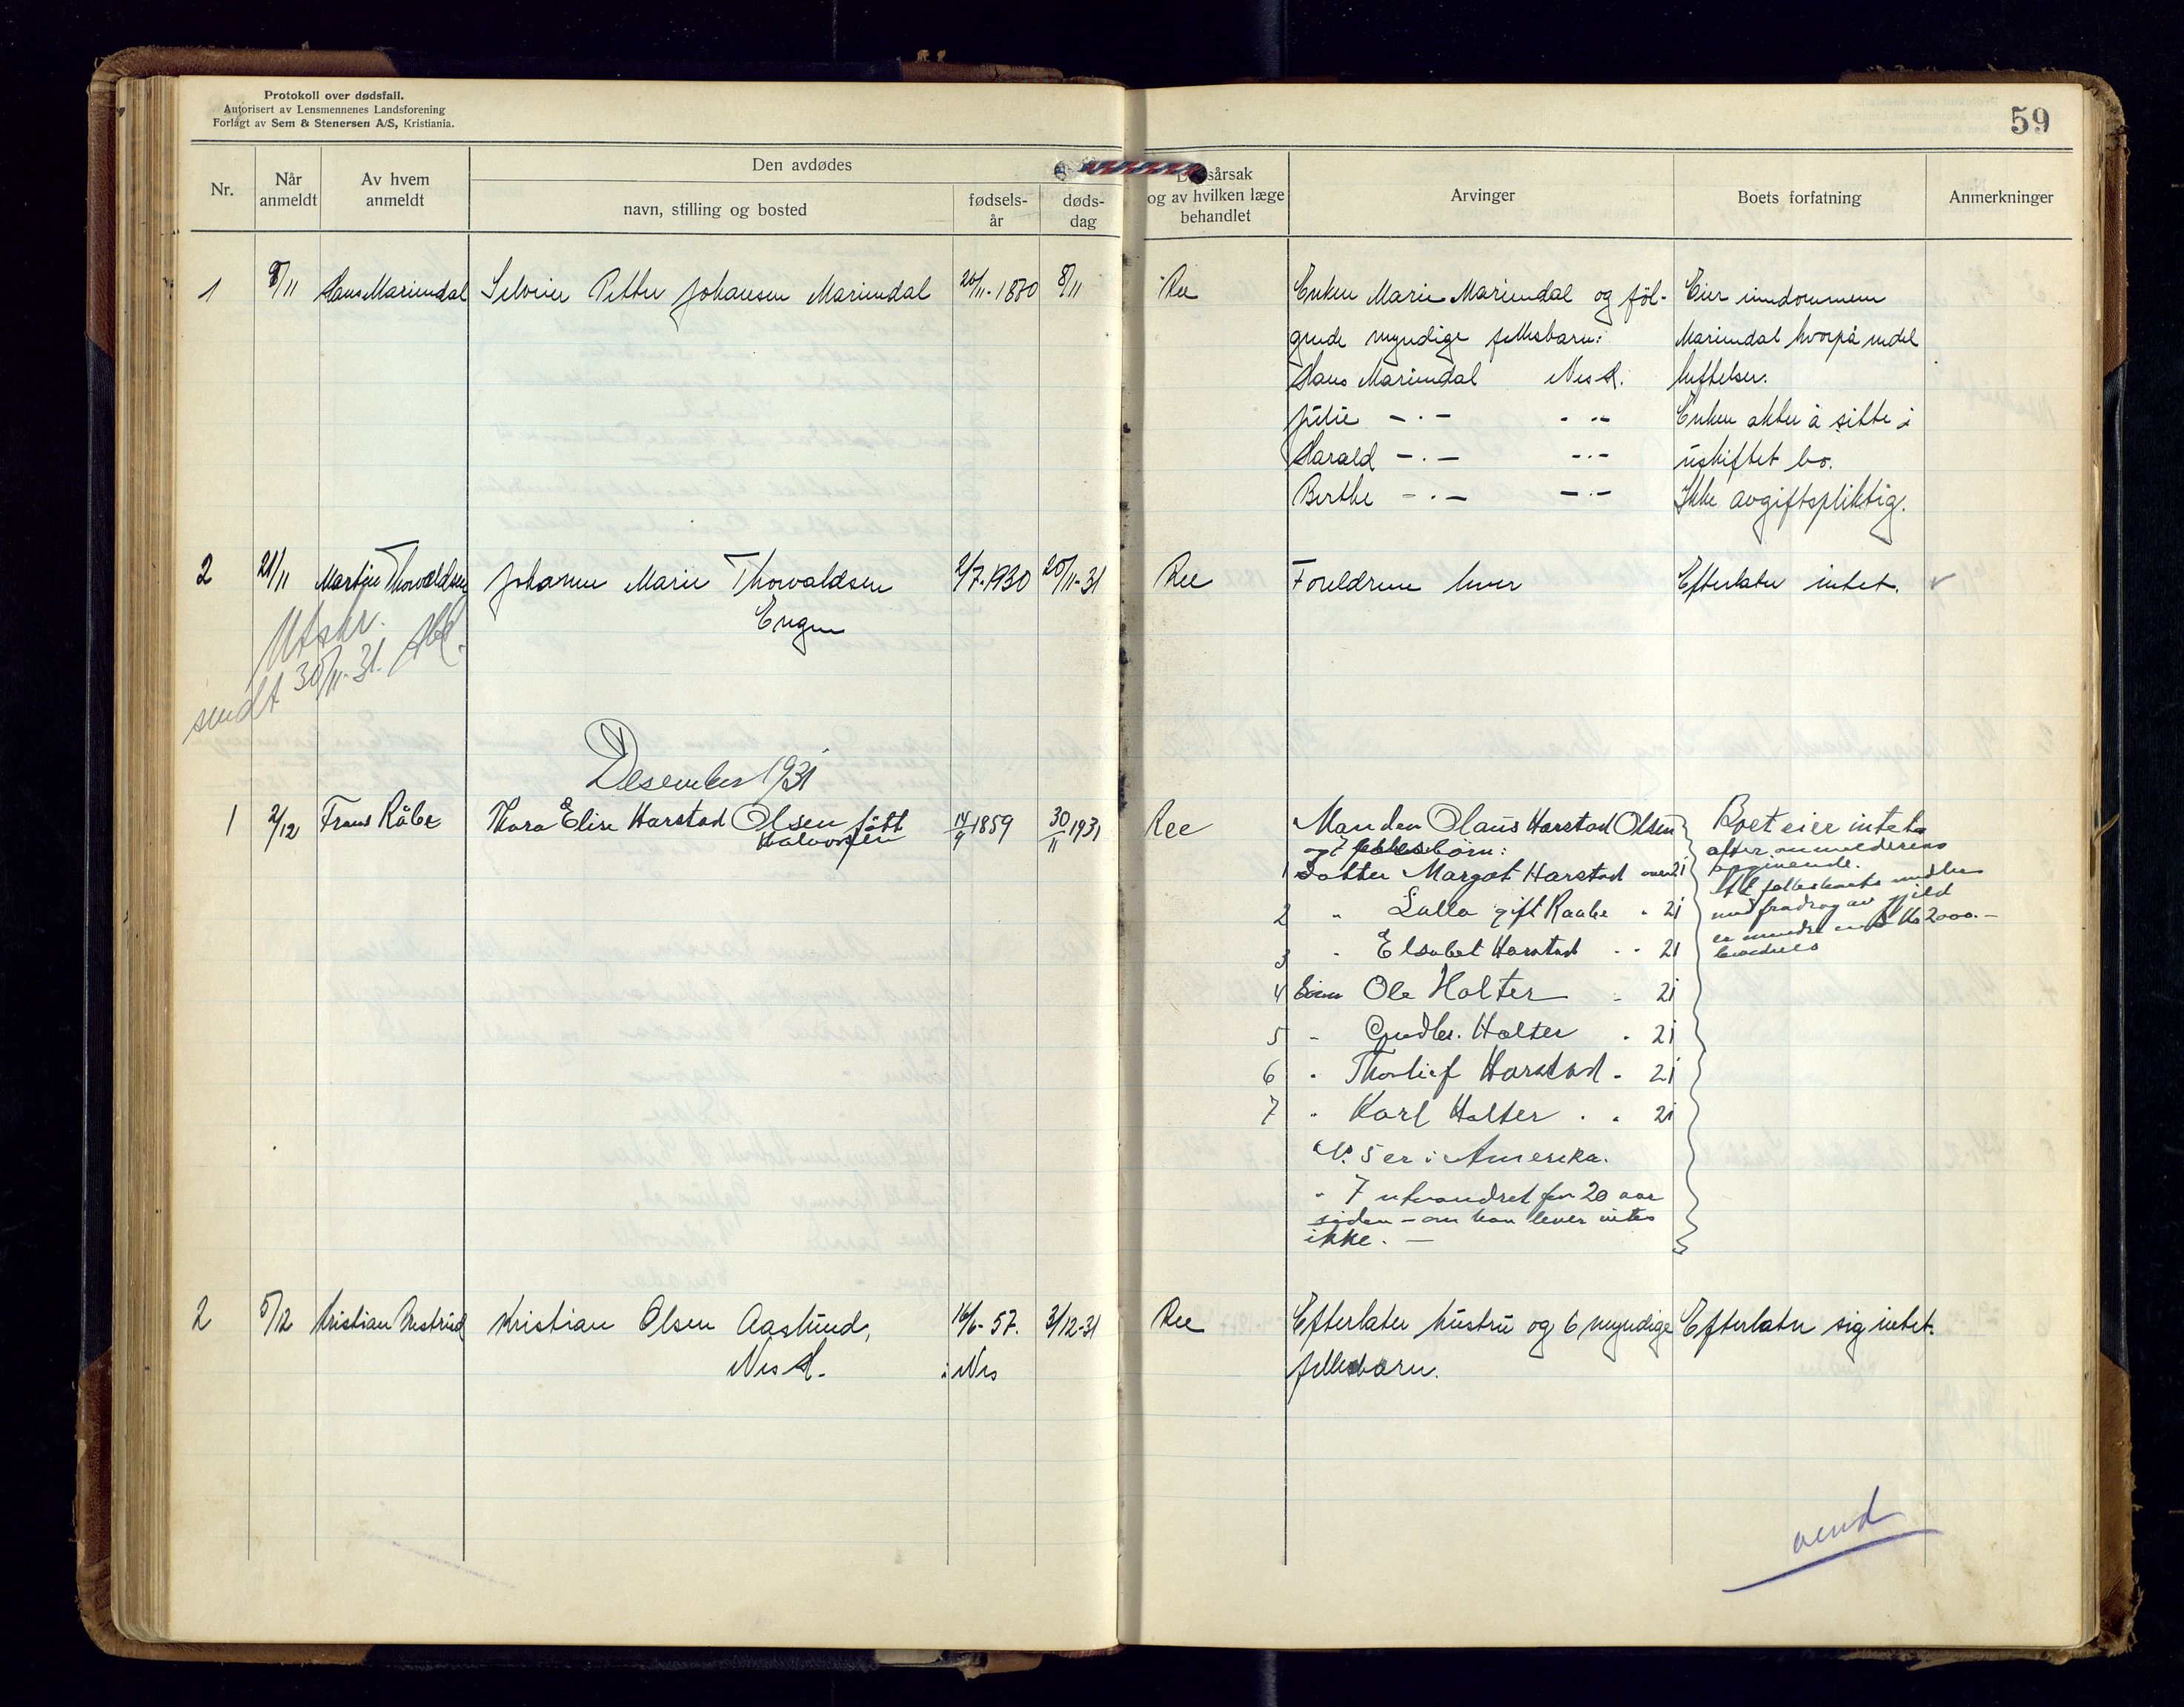 Protokoll over dødsfall.
Autorisert av Lensmennenes Landsforening
Forlagt av Sem & Stenersen A/S, Kristiania.
59
Nr.
Når anmeldt
Av hvem anmeldt
Den avdødes
navn, stilling og bosted
fødsels-år
døds-dag
og av hvilken læge behandlet
Arvinger
Boets forfatning
Anmerkninger
1 8/11 Hans Mariendal Petter Johansen Mariendal 20/11-1880 8/11 Ree Enken Marie Mariendal og føl- Eier eiendommen
gende myndige fellesbarn: Mariendal hvorpå endel
Hans Mariendal Nes H. heftelser.
Julie -.- -.- Enken akter å sitte i
Harald -.- -.- uskiftet bo.
Berthe -.- -.- Ikke avgiftspliktig.
2 21/11 Martin Thorvaldsen Johanne Marie Thorvaldsen 2/7-1930 20/11-31 Ree Foreldrene lever Efterlater intet.
Engen
Utskr.
sendt 30/11-31.
Desember 1931
1 2/12 Frans Råbe Thora Elise Harstad Olsen født 14/9 1859 30/11 1931 Ree Manden Olaus Harstad Olsen Boet eier intet
Halvorsen og 7 fellesbørn: efter anmelderens
opgivende.
1 Datter Margot Harstad over 21
Alt fellesboets midler
med fradrag av gjeld
2 " Lalla gift Raabe " 21
er mindre enn kr 2000.-
3 " Elsabet Harstad " " 21
4 Sønn Ole Halter " 21
5 " Gudbr. Halter " 21
6 " Thorleif Harstad " 21
7 " Karl Halter " " 21
N. 5 er i Amerika.
" 7 utvandret for 20 aar
siden - om han lever vites
ikke. -
2 5/12 Kristian Olsen Aaslund, 16/6-57. 3/12-31 Ree Efterlater hustru og 6 myndige Efterlater sig intet.
Nes H. i Nes fellesbarn.
vend